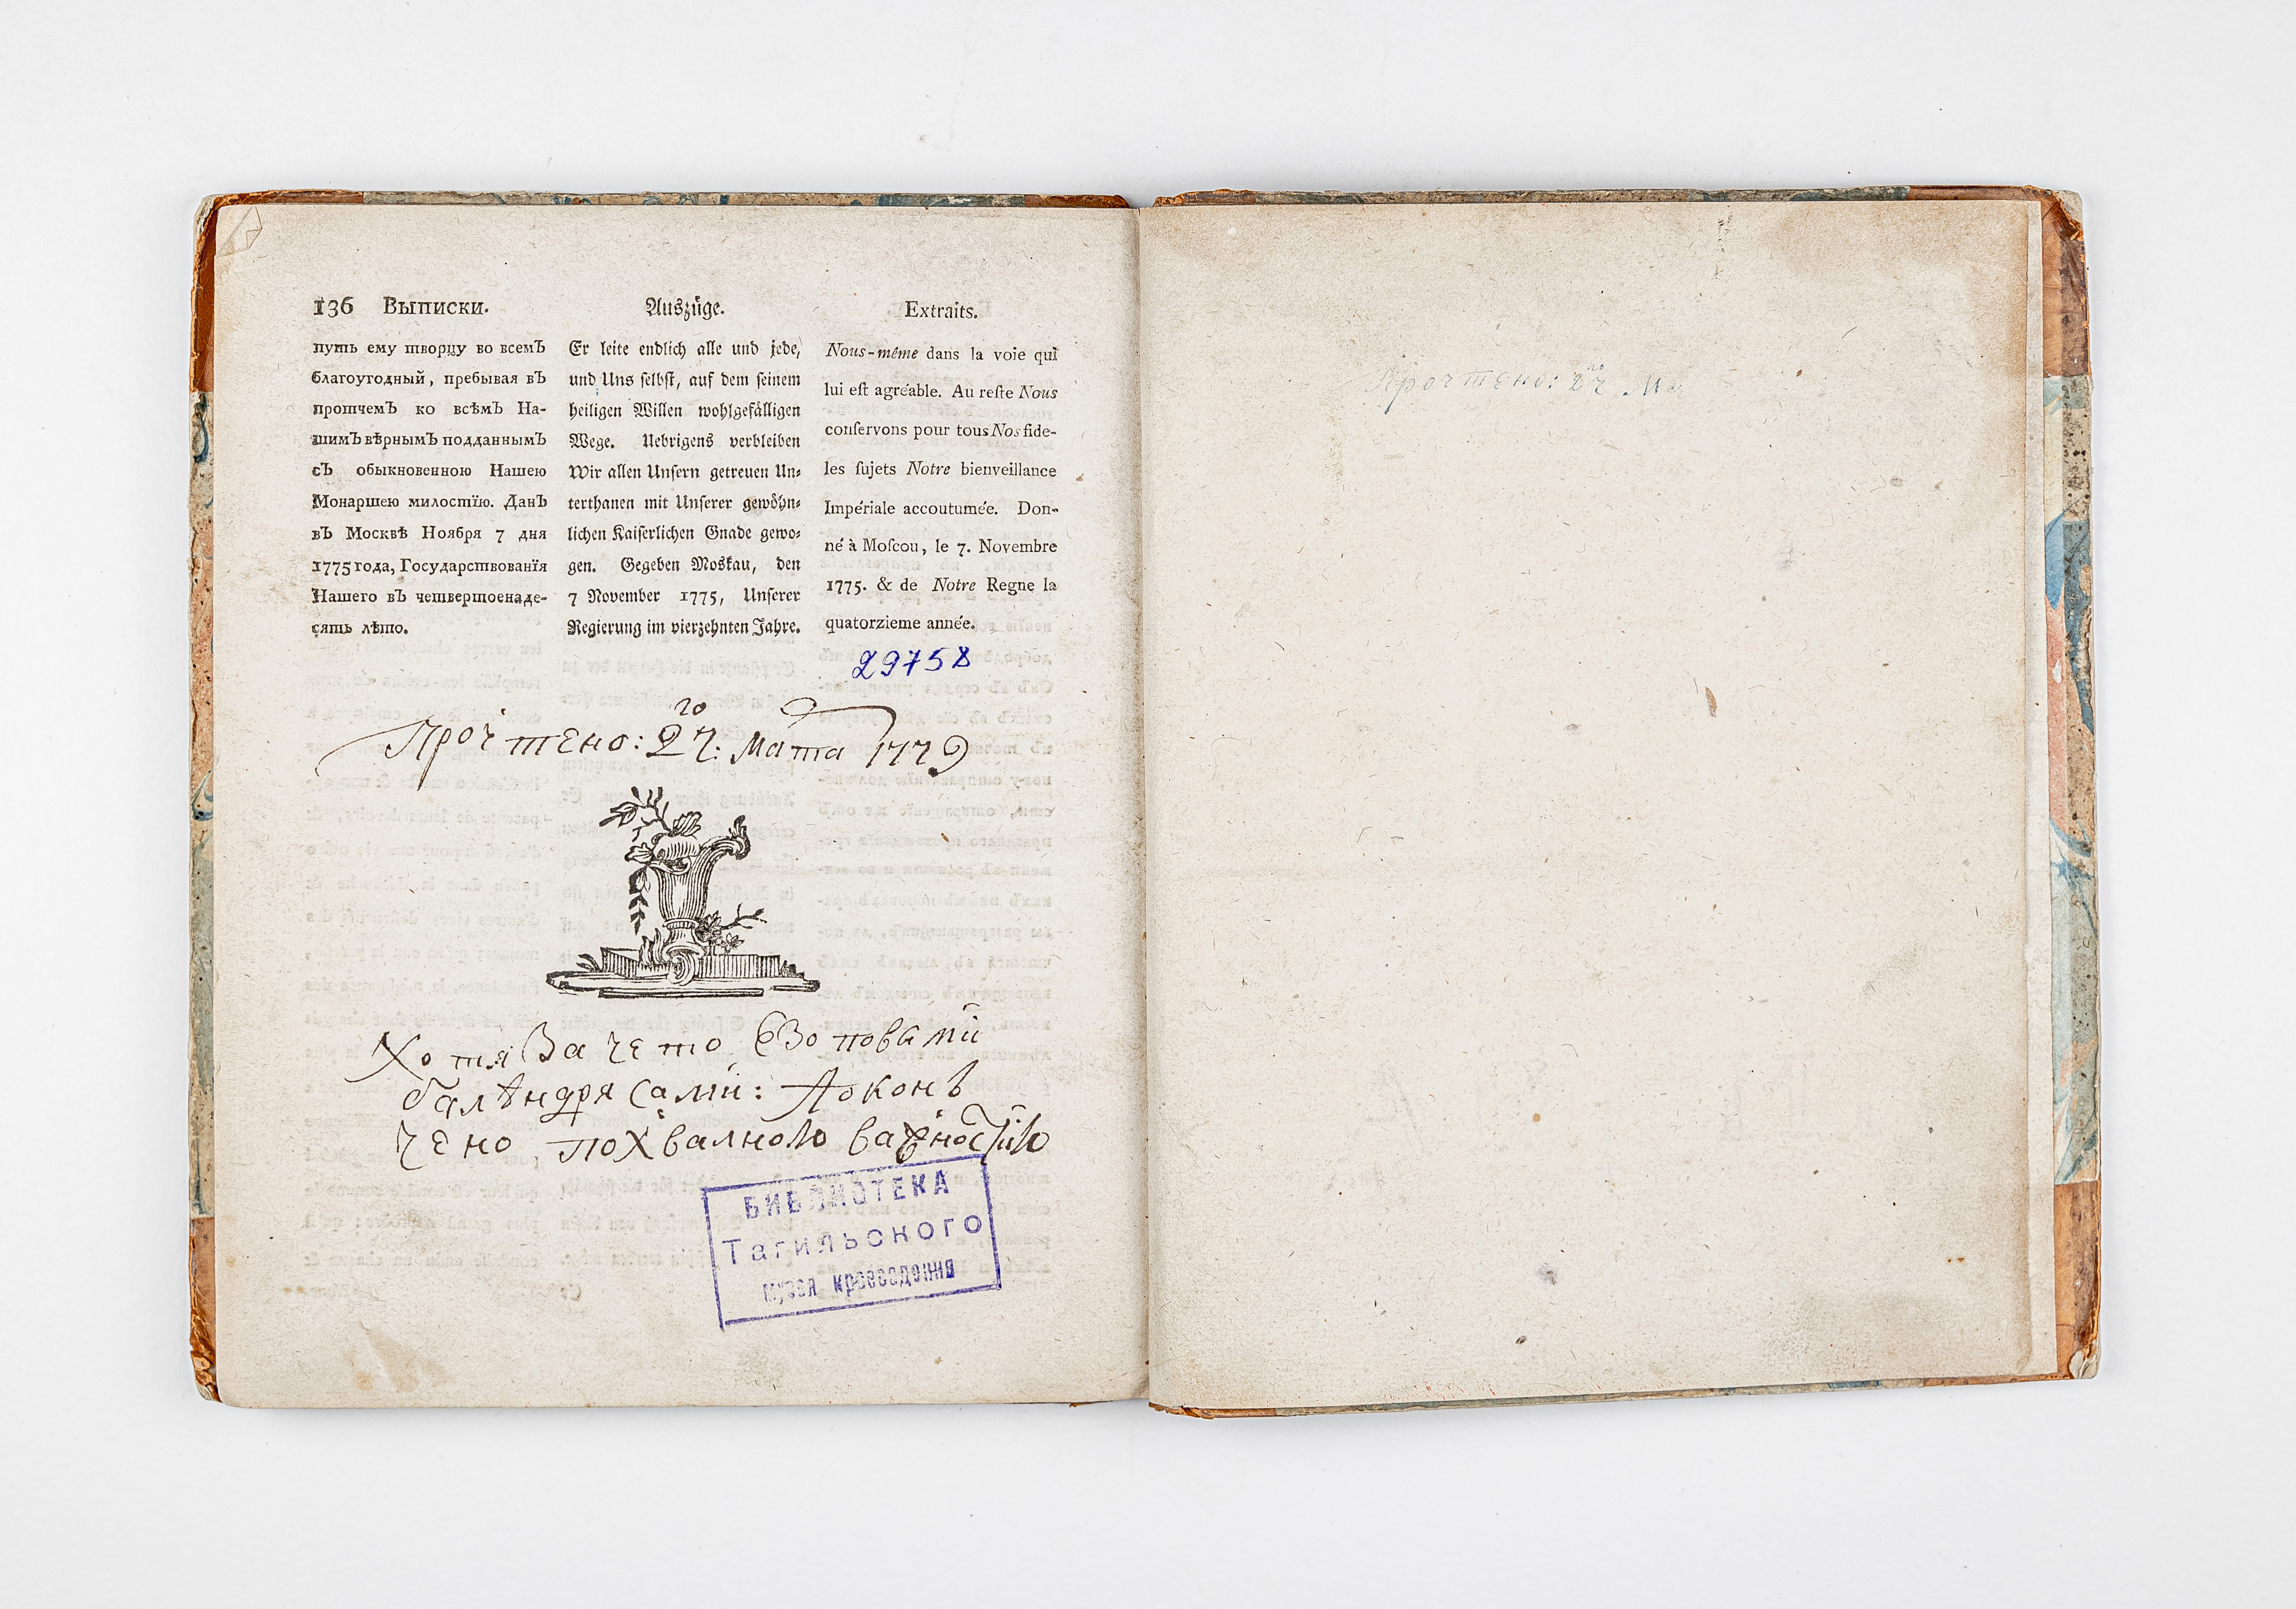 136 Выписки.
путь ему творцу во всемЪ
благоугодный, пребывая вЪ
протчемЪ ко всѣмЪ На-
шимЪ вѣрнымЪ подданнымЪ
сЪ обыкновенною Нашею
Монаршею милостїю. ДанЪ
вЪ Москвѣ Ноября 7 дня
1775 года, Государствованїя
Нашего вЪ четвертоенаде-
сять лѣто.
Auszüge.
Er leite endlich alle und jede,
und Uns ſelbſt, auf dem ſeinem
heiligen Willen wohlgefälligen
Wege. Uebrigens verbleiben
Wir allen Unſern getreuen Un-
terthanen mit Unſerer gewöhn-
lichen Kaiſerlichen Gnade gewo-
gen. Gegeben Moskau, den
7 November 1775, Unſerer
Regierung im vierzehnten Jahre.
Extraits.
Nous-même dans la voie qui
lui eſt agréable. Au reſte Nous
conſervons pour tous Nos fide-
les ſujets Notre bienveillance
Impériale accoutumée. Don-
né à Moſcou, le 7. Novembre
1775. & de Notre Regne la
quatorzieme année.
29758
Прочтено: 27.го Маѣа 1779
Хотя Зачето Езоповыми
балѣндрясами: Аоконъ
чено похвалною важностїю
БИБЛИОТЕКА
Тагильского
музея краеведения
Прочтено: 27го Ма